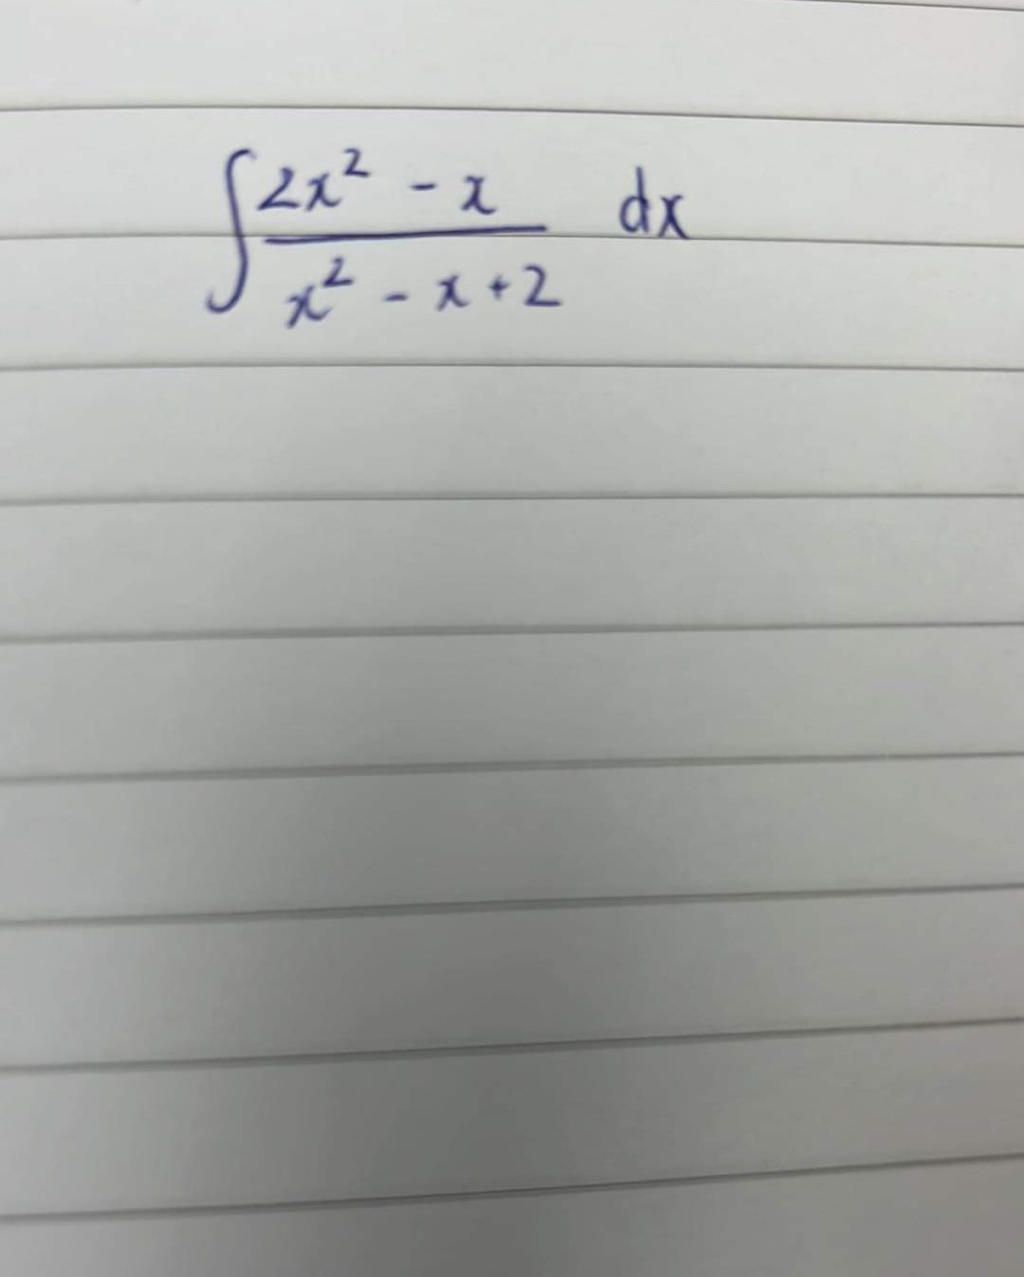 ∫ (2x² - x) / (x² - x + 2) dx